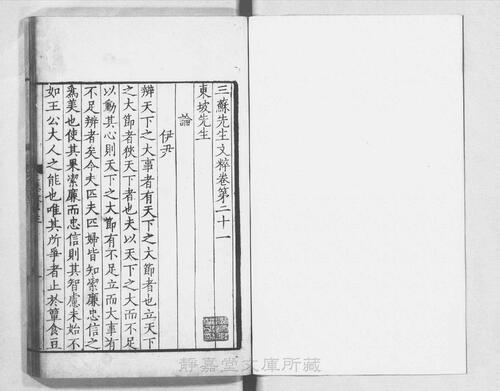 三蘇先生文粹卷第二十一
東坡先生
論
伊尹
辨天下之大事者有天下之大節者也立天下
之大節者狹天下者也夫以天下之大而不足
以動其心則天下之大節有不足立而大事有
不足辨者矣今夫匹夫匹婦皆知潔廉忠信之
爲美也使其果潔廉而忠信則其智慮未始不
如王公大人之能也唯其所爭者止於簞食豆
靜嘉堂文庫所藏